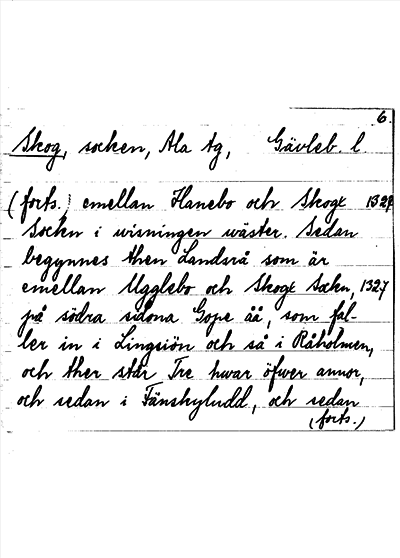 6.
Skog, socken, Ala tg, Gävleb. l.
(forts.) emellan Hanebo och Skogx 1327
Sockn i wisningen wäster. Sedan
begynnes then Landsrå som är
emellan Ugglebo och Skogx Sockn, 1327
på södra sidona Gope åå, som fal-
ler in i Lingsiön och så i Råholmen,
och ther står Tre hwar öfwer annor,
och sedan i Fänskyludd, och sedan
(forts.)